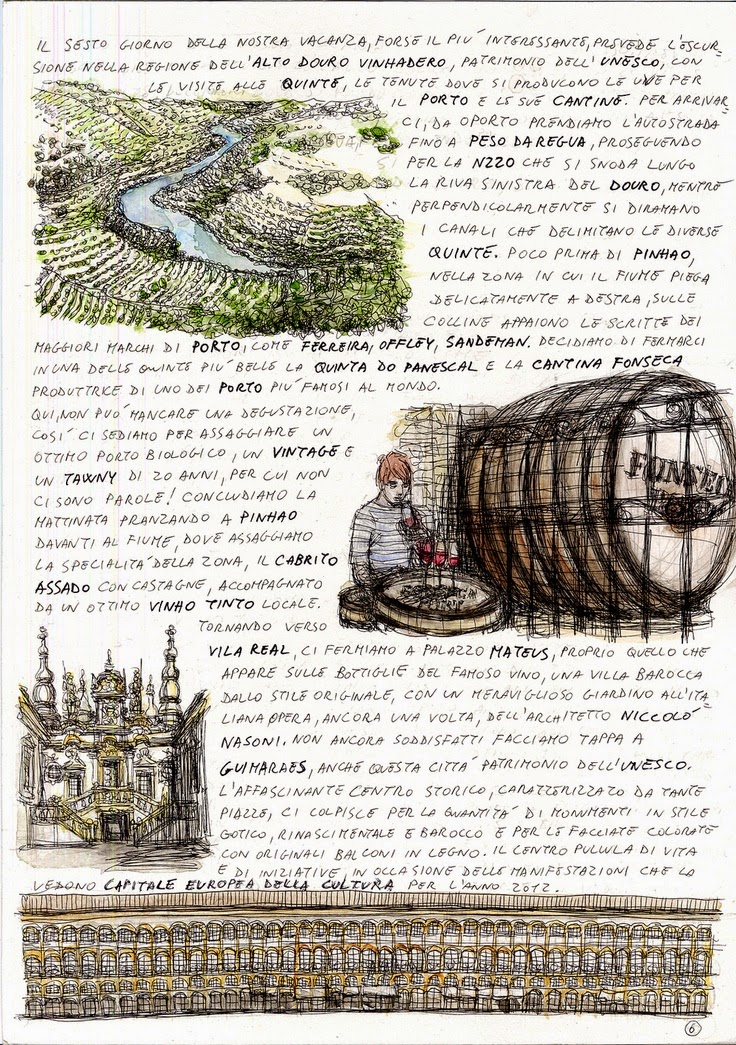 IL SESTO GIORNO DELLA NOSTRA VACANZA, FORSE IL PIU' INTERESSANTE, PREVEDE L'ESCUR-
SIONE NELLA REGIONE DELL'ALTO DOURO VINHADERO, PATRIMONIO DELL'UNESCO, CON
LE VISITE ALLE QUINTE, LE TENUTE DOVE SI PRODUCONO LE UVE PER
IL PORTO E LE SUE CANTINE. PER ARRIVAR-
CI, DA OPORTO PRENDIAMO L'AUTOSTRADA
FINO A PESO DA REGUA, PROSEGUENDO
PER LA N220 CHE SI SNODA LUNGO
LA RIVA SINISTRA DEL DOURO, MENTRE
PERPENDICOLARMENTE SI DIRAMANO
I CANALI CHE DELIMITANO LE DIVERSE
QUINTE. POCO PRIMA DI PINHAO,
NELLA ZONA IN CUI IL FIUME PIEGA
DELICATAMENTE A DESTRA, SULLE
COLLINE APPAIONO LE SCRITTE DEI
MAGGIORI MARCHI DI PORTO, COME FERREIRA, OFFLEY, SANDEMAN. DECIDIAMO DI FERMARCI
IN UNA DELLE QUINTE PIU' BELLE LA QUINTA DO PANESCAL E LA CANTINA FONSECA
PRODUTTRICE DI UNO DEI PORTO PIU' FAMOSI AL MONDO.
QUI, NON PUO' MANCARE UNA DEGUSTAZIONE,
COSI' CI SEDIAMO PER ASSAGGIARE UN
OTTIMO PORTO BIOLOGICO, UN VINTAGE E
UN TAWNY DI 20 ANNI, PER CUI NON
CI SONO PAROLE! CONCLUDIAMO LA
MATTINATA PRANZANDO A PINHAO
DAVANTI AL FIUME, DOVE ASSAGGIAMO
LA SPECIALITA' DELLA ZONA, IL CABRITO
ASSADO CON CASTAGNE, ACCOMPAGNATO
DA UN OTTIMO VINHO TINTO LOCALE.
TORNANDO VERSO
VILA REAL, CI FERMIAMO A PALAZZO MATEUS, PROPRIO QUELLO CHE
APPARE SULLE BOTTIGLIE DEL FAMOSO VINO, UNA VILLA BAROCCA
DALLO STILE ORIGINALE, CON UN MERAVIGLIOSO GIARDINO ALL'ITA-
LIANA OPERA, ANCORA UNA VOLTA, DELL'ARCHITETTO NICCOLO'
NASONI. NON ANCORA SODDISFATTI FACCIAMO TAPPA A
GUIMARAES, ANCHE QUESTA CITTA' PATRIMONIO DELL'UNESCO.
L'AFFASCINANTE CENTRO STORICO, CARATTERIZZATO DA TANTE
PIAZZE, CI COLPISCE PER LA QUANTITA' DI MONUMENTI IN STILE
GOTICO, RINASCIMENTALE E BAROCCO E PER LE FACCIATE COLORATE
CON ORIGINALI BALCONI IN LEGNO. IL CENTRO PULLULA DI VITA
E DI INIZIATIVE, IN OCCASIONE DELLE MANIFESTAZIONI CHE LA
VEDONO CAPITALE EUROPEA DELLA CULTURA PER L'ANNO 2012.
6